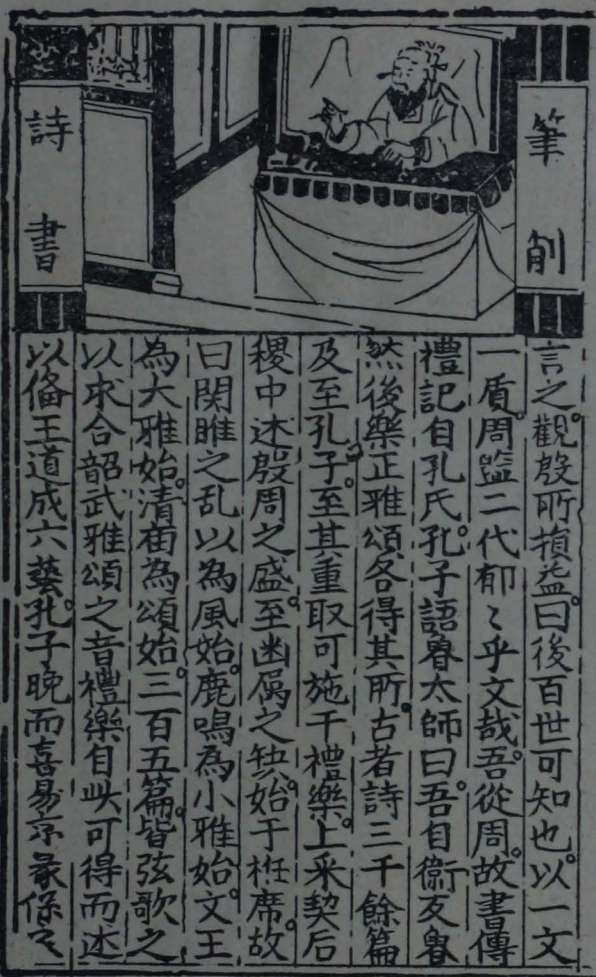 筆削
詩書
言之。觀殷所損益。曰後百世可知也。以一文
一質。周監二代郁〻乎文哉。吾。從周。故書傳
禮記自孔氏。孔子語魯太師曰。吾自衛反魯
然後樂正雅頌。各得其所。古者詩三千餘篇
及至孔子。至其重取可施于禮樂。上采契后
稷中述殷周之盛。至幽厲之缺。始于袵席。故
曰関雎之乱以為風始。鹿鳴為小雅始。文王
為大雅始。清庙為頌始。三百五篇。皆弦歌之
以求合韶武雅頌之音禮樂自此可得而述
以俻王道成六藝。孔子晚而喜易序彖係之